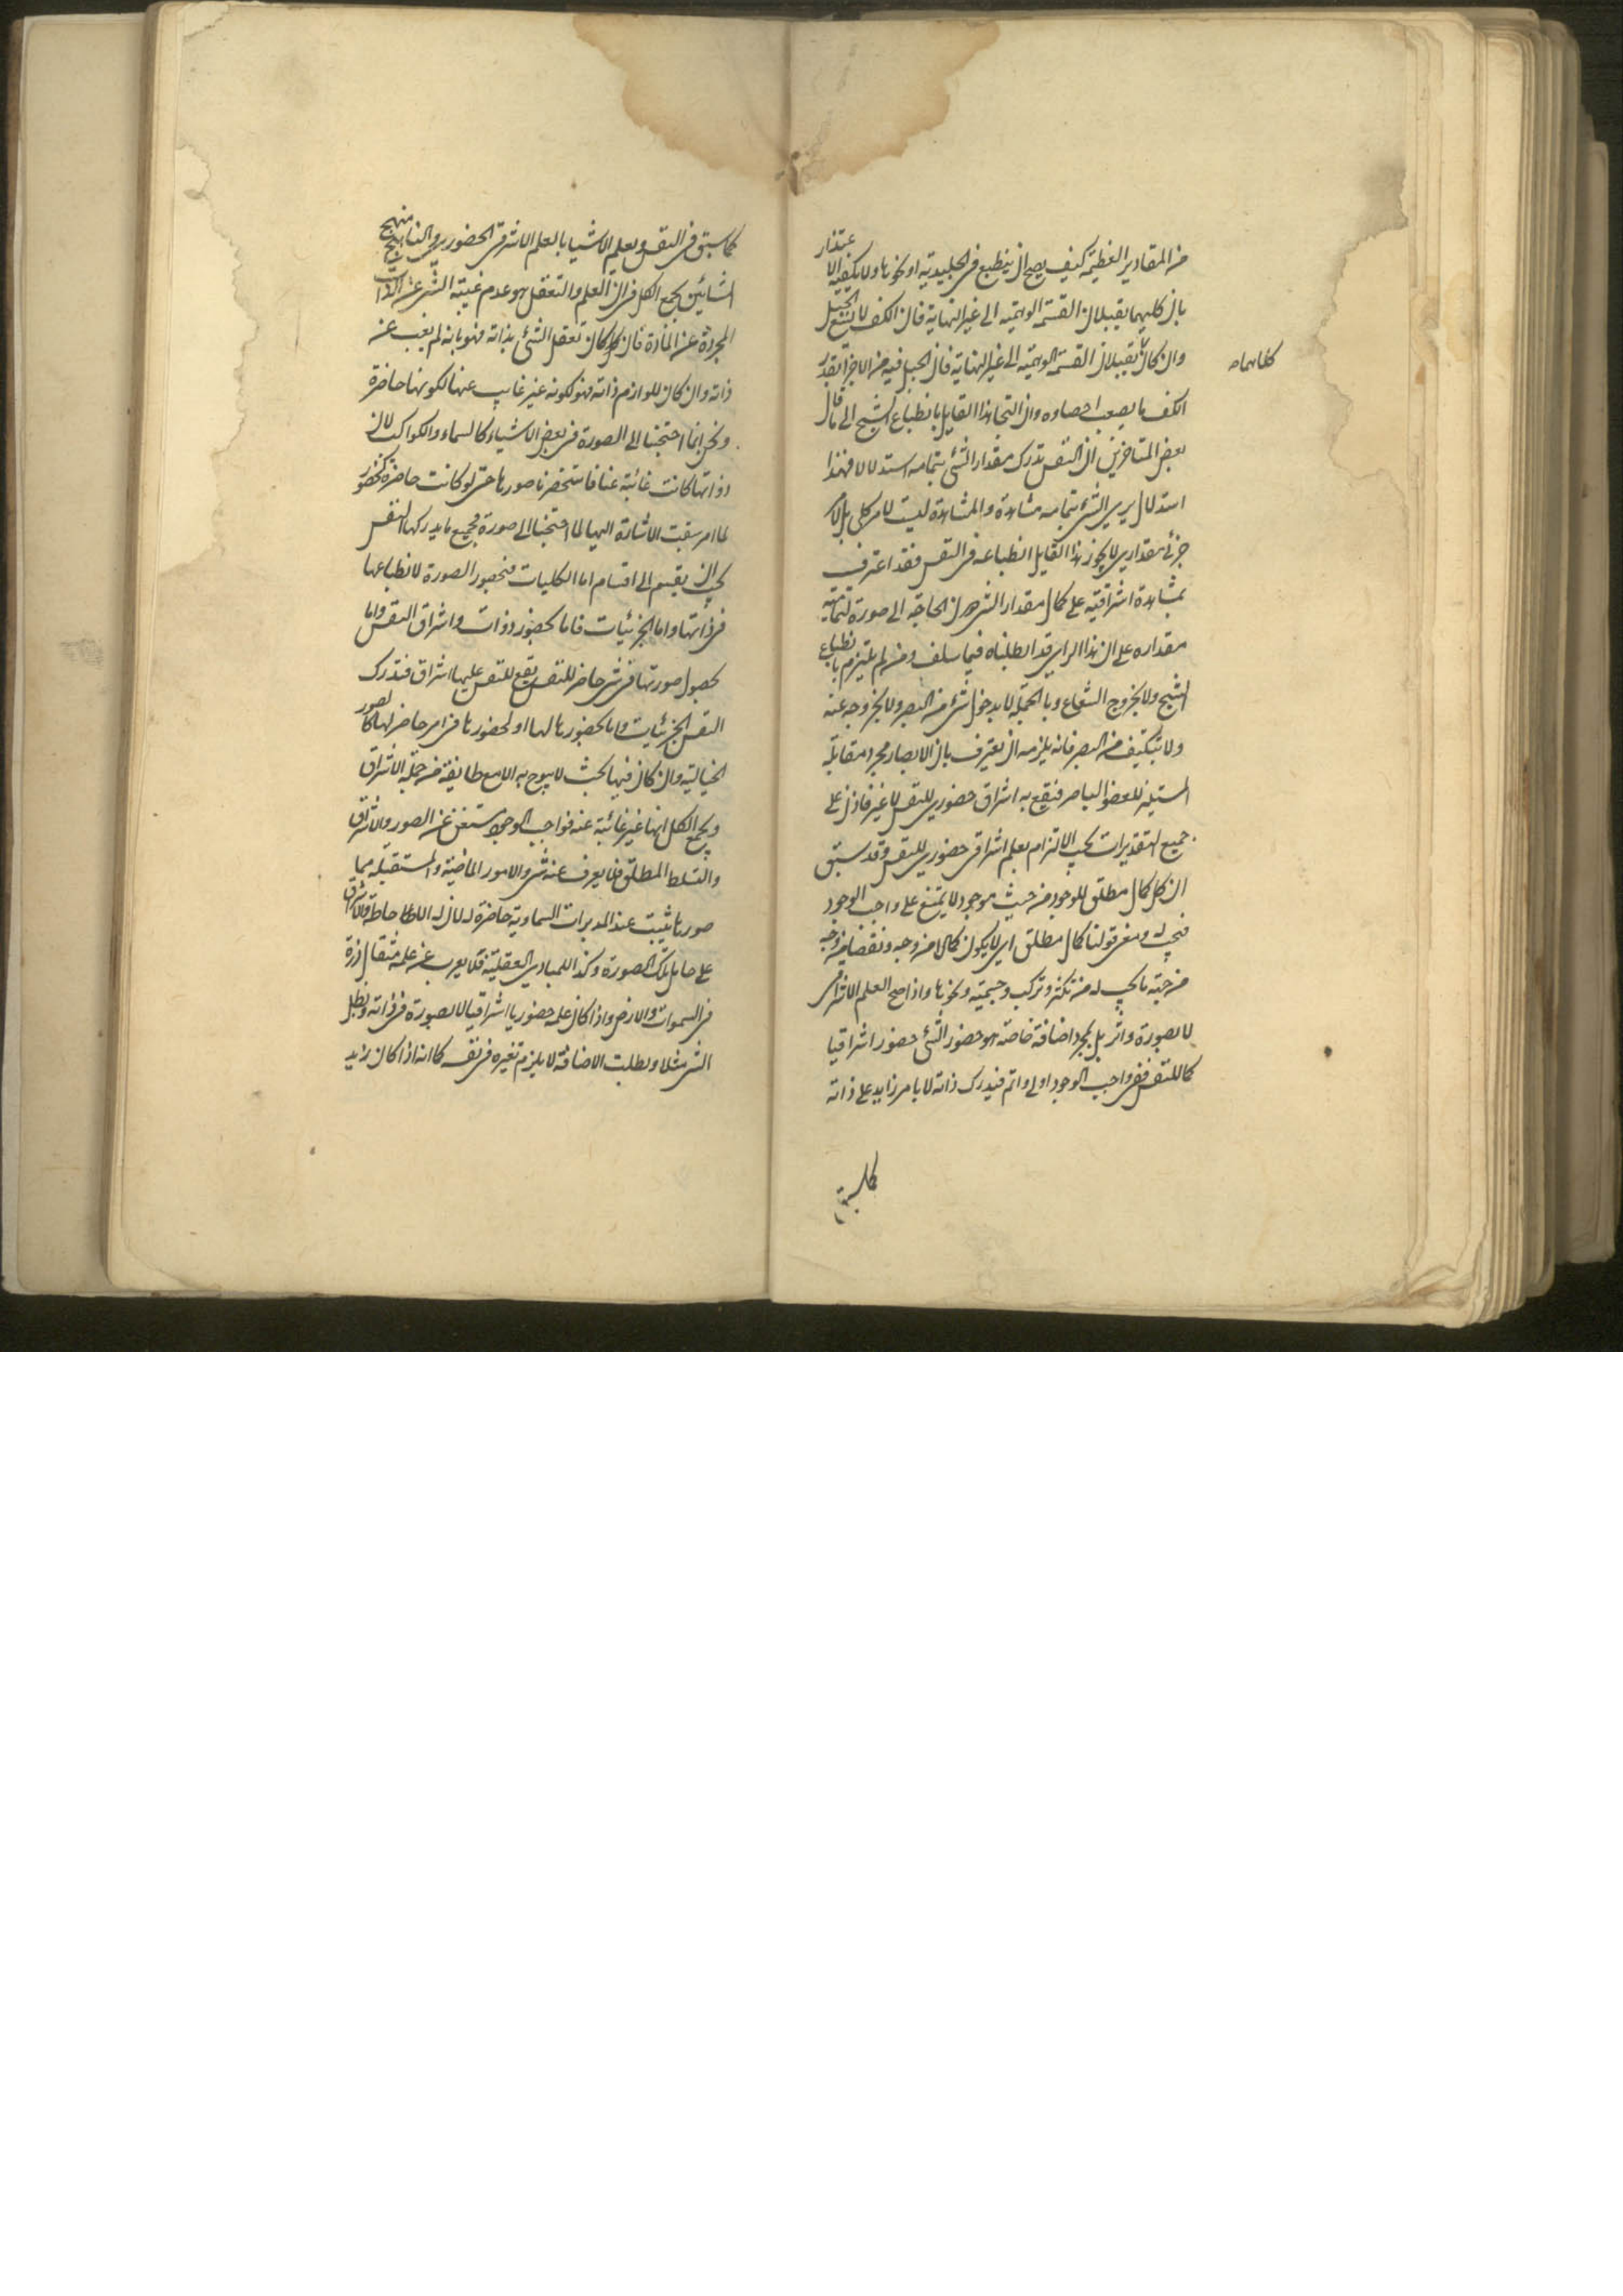 من المقادير العظيمة كيف يصح ان ينطبع فى الجليدية او نحوها ولا يكفيه الاعتذار
بان كليهما يقبلان القسمة الوهمية الى غير النهاية فان الكف لا يسع الجبل
وان كانا يقبلان القسمة الوهمية الى غير النهاية فان الجبل فيه من الاجزاء بقدر
كفا
الكف ما يصعب احصاوه وان التجأ هذا القايل بانطباع الشبح الى ما قال
بعض المتاخرين ان النفس تدرك مقدار الشئ بتمامه استدلالا فهذا
استدلال يرى الشئ بتمامه مشاهدة والمشاهدة ليست لامر كلى بل لامر
جزئى مقدارى لا يجوز هذا القايل انطباعه فى النفس فقد اعترف
بمشاهدة اشراقية على كمال مقدار الشئ الحاجة الى صورة لتمامية
مقداره على ان هذا الراى قد ابطلناه فيما سلف ومن لم يلتزم بانطباع
الشبح ولا بخروج الشعاع وبالجملة لا بدخول شئ من البصر ولا بخروجه عنه
ولا بتكيف من البصر فانه يلزمه ان يعترف بان الابصار مجرد مقابلة
المستنير للعضو الباصر فيقع به اشراق حضورى للنفس لا غير فاذن على
جميع التقديرات يجب الالتزام بعلم اشراقى حضورى للنفس وقد سبق
ان كل كمال مطلق للموجود من حيث هو موجود لا يمتنع على واجب الوجود
فيجب له ومعنى قولنا كمال مطلق اى لا يكون كمالا من وجه ونقصا من وجه
من جهة ما يجب له من تكثر وتركب وجسمية ونحوها واذا صح العلم الاشراقى
لا بصورة واثر بل بمجرد اضافة خاصة هو حضور الشئ حضورا اشراقيا
كما للنفس ففى واجب الوجود اولى واتم فيدرك ذاته لا بامر زايد على ذاته
كما سبق
كما سبق فى النفس ويعلم الاشيا بالعلم الاشراقى الحضورى والنا منهج
المشائين يجمع الكل فى ان العلم والتعقل هو عدم غيبة الشئ عن الذات
المجردة عن المادة فان كان تعقل الشئ بذاته فهو بانه لم يغب عنه
ذاته وان كان للوازم ذاته فهو لكونه غير غايب عنها لكونها حاضرة
ونحن انما احتجنا الى الصورة فى بعض الاشياء كالسماء والكواكب لان
ذواتها كانت غائبة عنا فاستحضرنا صورها حتى لو كانت حاضرة كحضور
ما مر سبقت الاشارة اليها لما احتجنا الى صورة فجميع ما يدركها النفس
يجب ان يقسم الى اقسام اما الكليات فبحضور الصورة لانطباعها
فى ذاتها واما الجزئيات فاما بحضور ذوات واشراق النفس واما
بحصول صورتها فى شئ حاضر للنفس يقع للنفس عليها اشراق فتدرك
النفس الجزئيات اما بحضورها لها او لحضورها فى امر حاضر لها كالصور
الخيالية وان كان فيها بحث لا يبوح به الا مع طايفة من جملة الاشراق
ويجمع الكل انها غير غائبة عنه فواجب الوجود مستغن عن الصور والاشراق
والتسلط المطلق فلا يعزف عنه شئ والامور الماضية والمستقبلة مما
صورها تثبت عند المدبرات السماوية حاضرة له لان له الاحاطة والاشراق
على حامل تلك الصورة وكذا للمبادى العقلية فلا يعزب عن علمه مثقال ذرة
فى السموات والارض واذا كان علمه حضوريا اشراقيا لا بصورة فى ذاته وبطل
الشئ مثلا وبطلت الاضافة لا يلزم تغيره فى نفسه كما انه اذا كان زايد